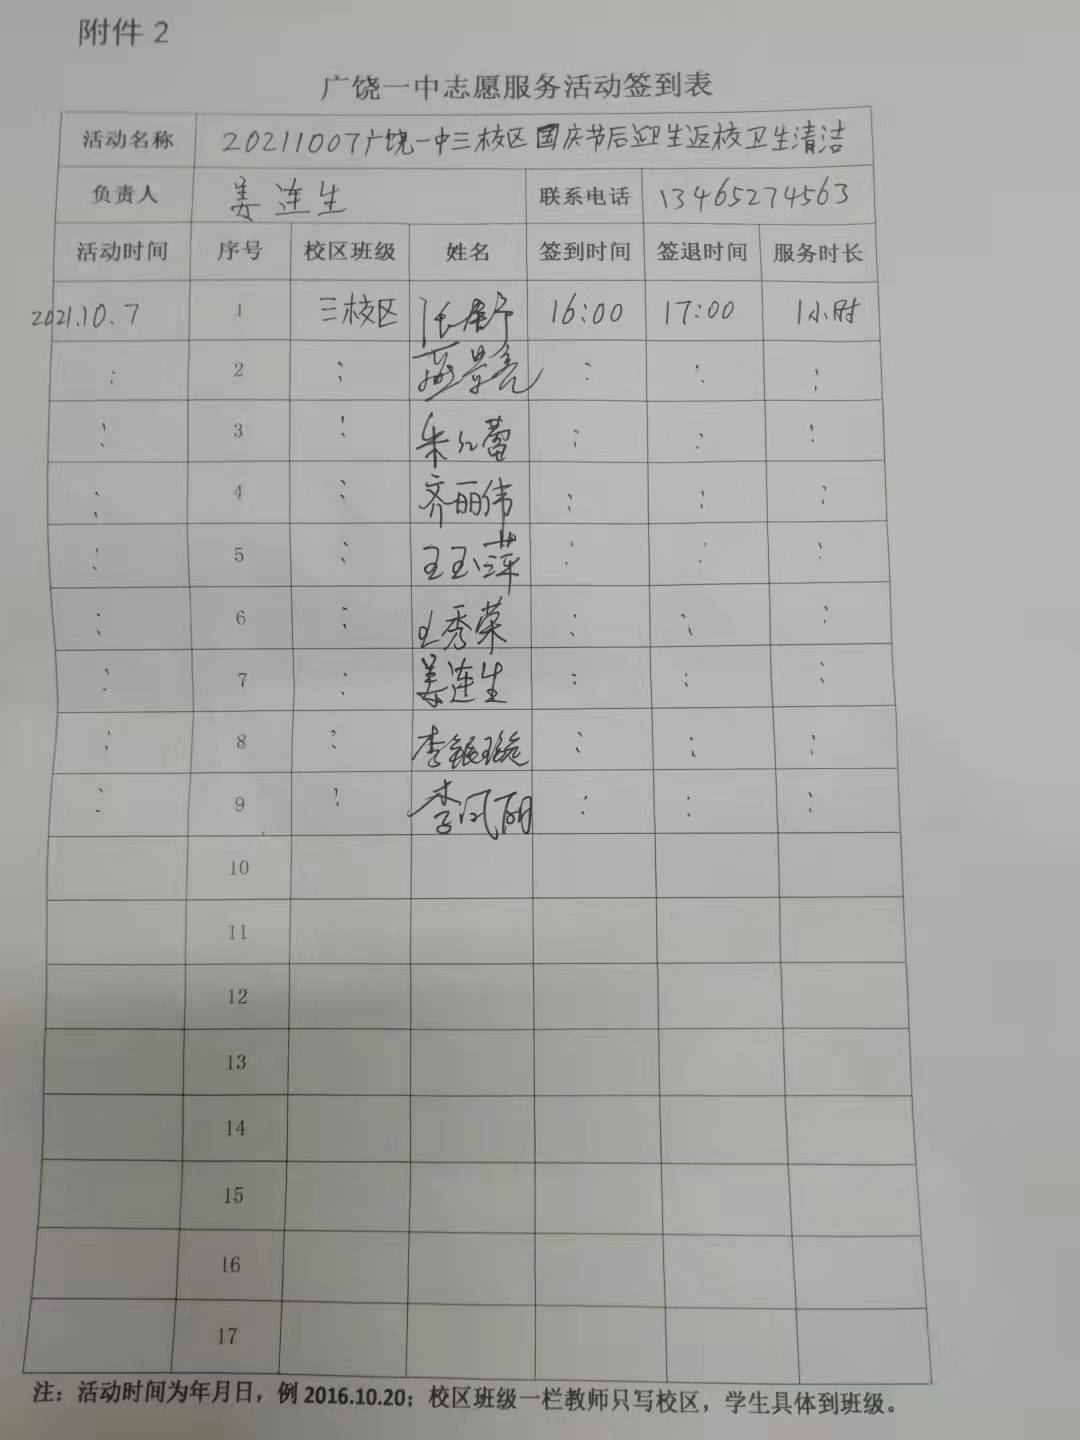 附件 2
广饶一中志愿服务活动签到表
活动名称 20211007广饶一中三校区国庆节后迎生返校卫生清洁
负责人 姜连生 联系电话 13465274563
活动时间 序号 校区班级 姓名 签到时间 签退时间 服务时长
2021.10.7 1 三校区 张舒 16:00 17:00 1小时
: 2 : 景亮 : : :
: 3 : 朱红蕾 : : :
: 4 : 齐丽伟 : : :
: 5 : 王玉萍 : : :
: 6 : 王秀荣 : : :
: 7 : 姜连生 : : :
: 8 : 李 : : :
: 9 : 李凤丽 : : :
10
11
12
13
14
15
16
17
注：活动时间为年月日，例 2016.10.20；校区班级一栏教师只写校区，学生具体到班级。